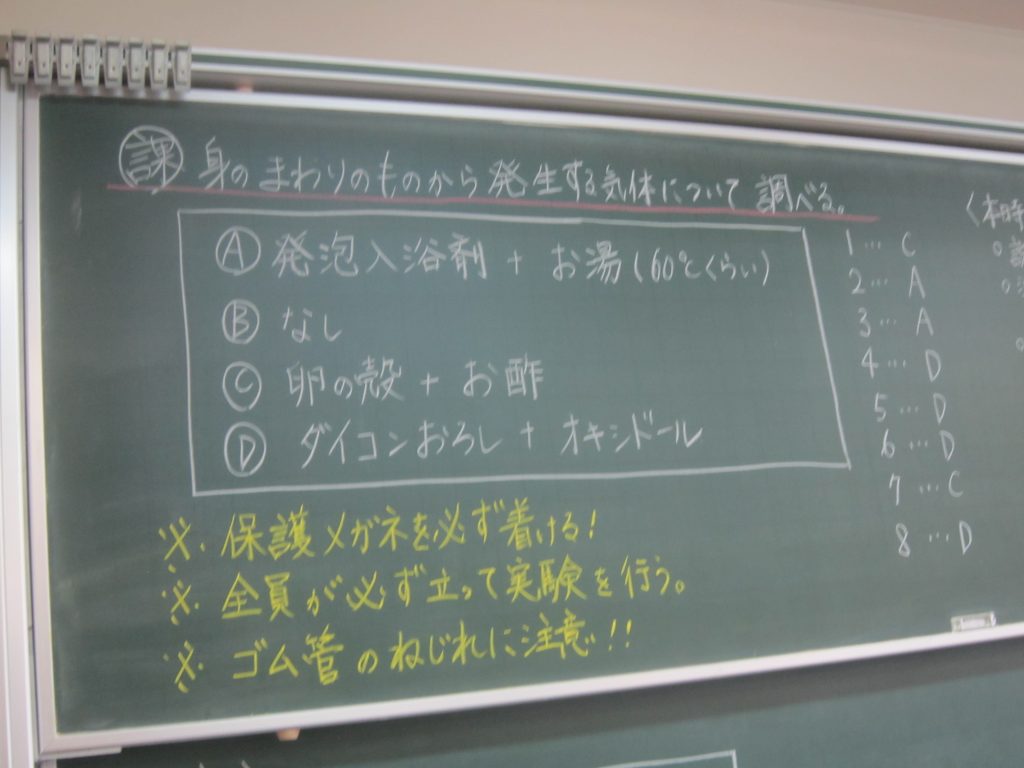 課 身のまわりのものから発生する気体について調べる。
Ⓐ 発泡入浴剤 + お湯(60℃くらい)
Ⓑ なし
Ⓒ 卵の殻 + お酢
Ⓓ ダイコンおろし + オキシドール
※. 保護メガネを必ず着ける!
※. 全員が必ず立って実験を行う。
※. ゴム管のねじれに注意!!
1 … C
2 … A
3 … A
4 … D
5 … D
6 … D
7 … C
8 … D
〈本時